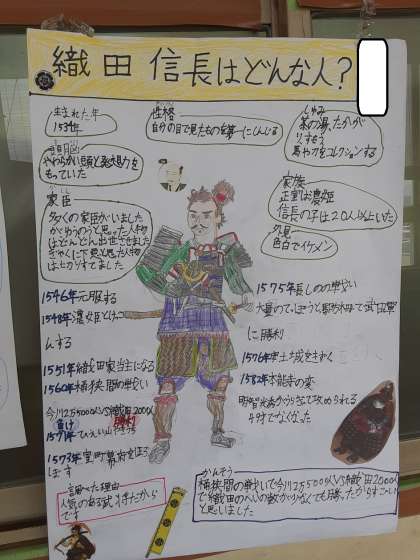 織田信長はどんな人？
生まれた年
1534年
性格
自分の目で見たものを第一にしんじる
しゅみ
茶の湯、たかがり、すもう
馬や刀をコレクションする
頭脳
やわらかい頭と発想力を
もっていた
家臣
タタくの家臣がいました
かつゆうのうと思った人物
はどんどん出世させました
ぎゃくに下要と思た人物
は
てました
家族
正室は濃姫
信長の子は20人以上いた
外見
色白でイケメン
1546年元服する
1548年濃姫とけっこ
んする
1551年織田家当主になる
1560年桶狭間の戦い
今川25000人VS織田2000人
負け
勝利
1571年
1573年室町幕府を
ぼす
1575年長しのの戦い
大量のてっぽうと
で武田軍
に勝利
1576年安土城をきずく
1582年本能寺の変
明智光秀がうらぎって攻められる
49才でなくなった
調べた理由
人気のある武しょうだから
です
かんそう
桶狭間の戦いで今川25000人VS織田2000人
で織田のへいの数が少なくても勝ったからすごい
と思いました